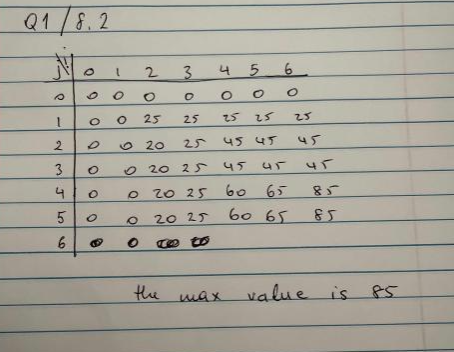 Q1 / 8.2
j\i 0 1 2 3 4 5 6
0 0 0 0 0 0 0 0
1 0 0 25 25 25 25 25
2 0 0 20 25 45 45 45
3 0 0 20 25 45 45 45
4 0 0 20 25 60 65 85
5 0 0 20 25 60 65 85
6 0 0
the max value is 85